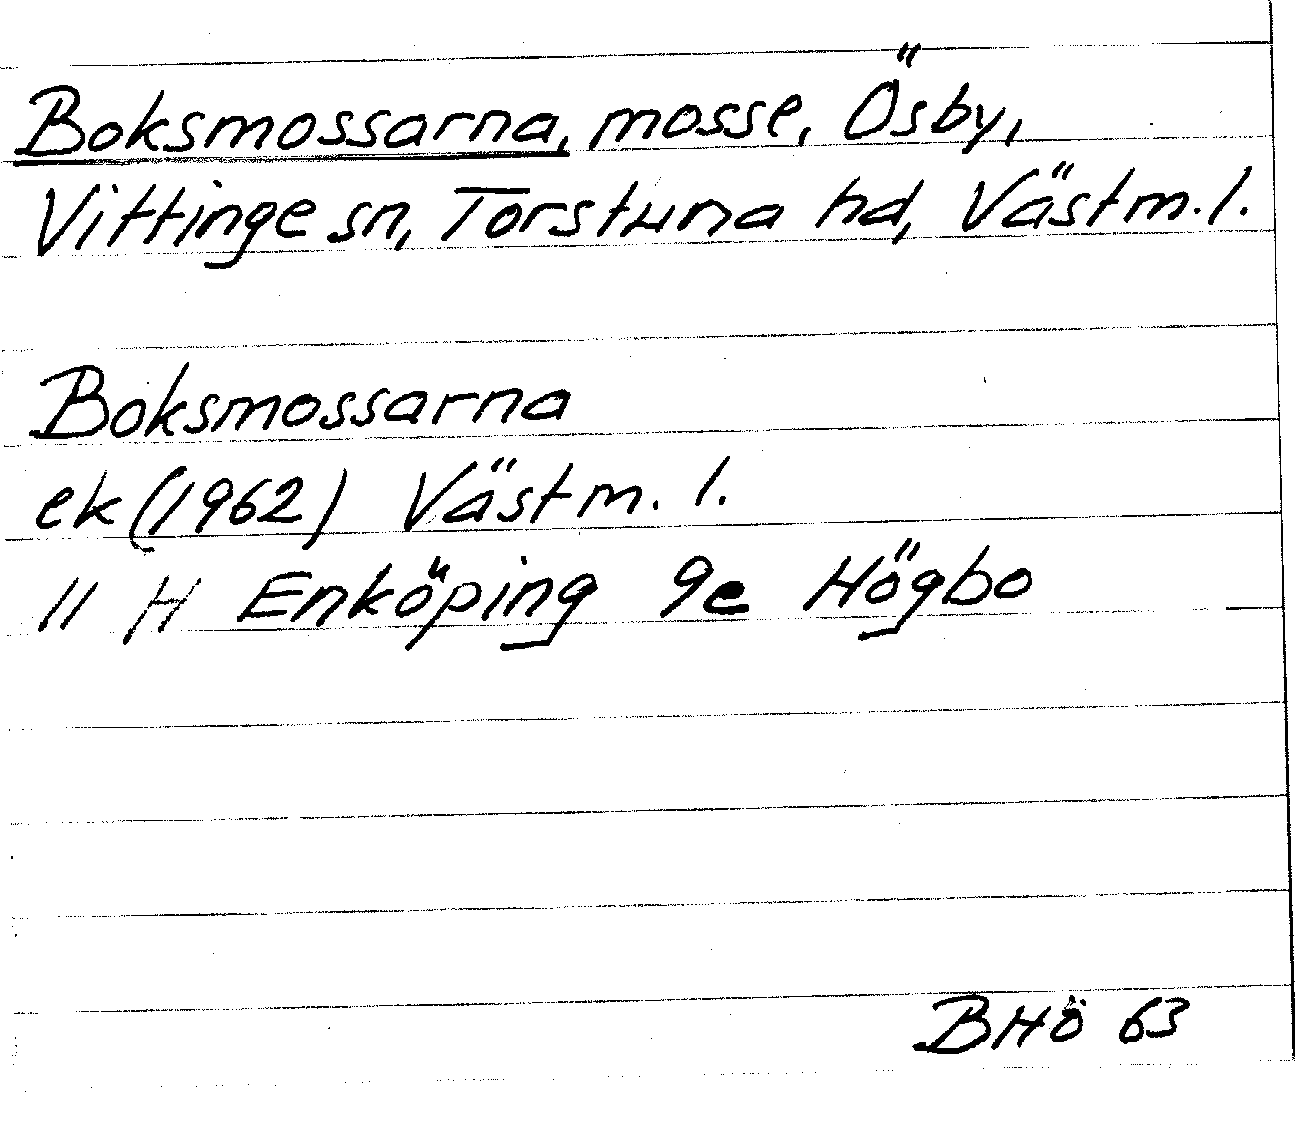 Boksmossarna, mosse, Ösby,
Vittinge sn, Torstuna hd, Västm.l.
Boksmossarna
ek (1962) Västm. l.
11 H Enköping 9e Högbo
BHÖ 63